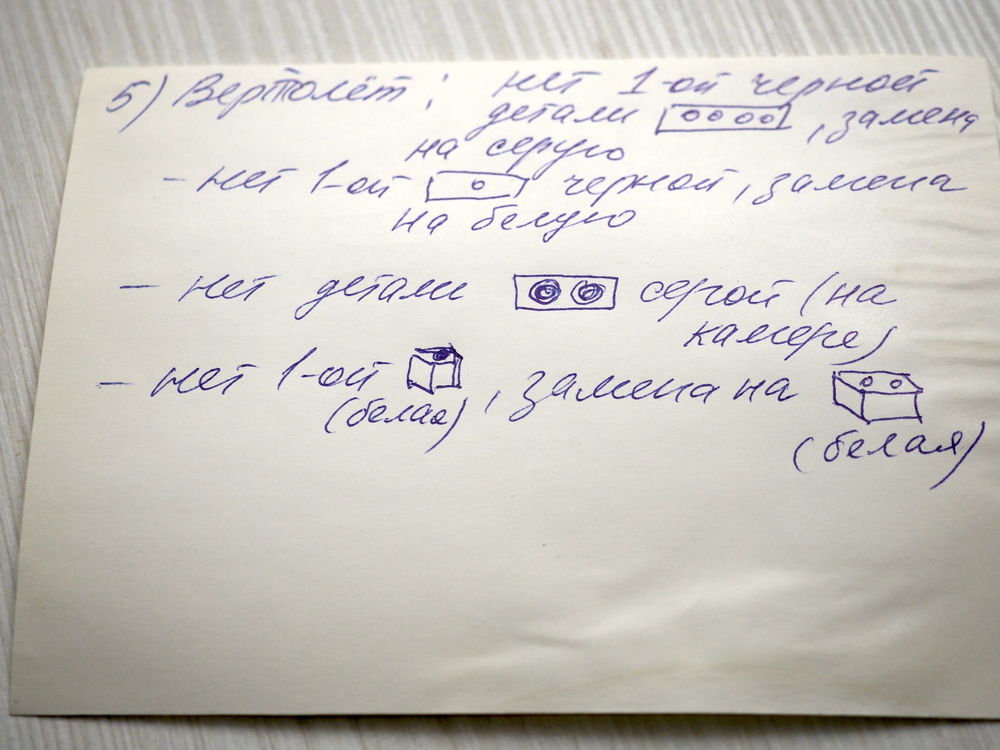 5) Вертолёт: нет 1-ой черной
детали , замена
на серую
- нет 1-ой черной, замена
на белую
- нет детали серой (на
камере)
- нет 1-ой , замена на
(белая)
(белая)